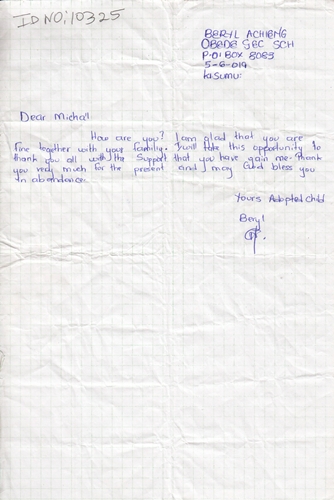 ID NO: 10325
BERYL ACHIENG
OBEDE SEC SCH
P.O. BOX 8085
5-6-019
KISUMU:
Dear Michall
How are you? I am glad that you are
fine together with your family. I will take this opportunity to
thank you all with the support that you have gain me. thank
you very much for the present and may God bless you
in abandance.
Yours Adopted Child
Beryl